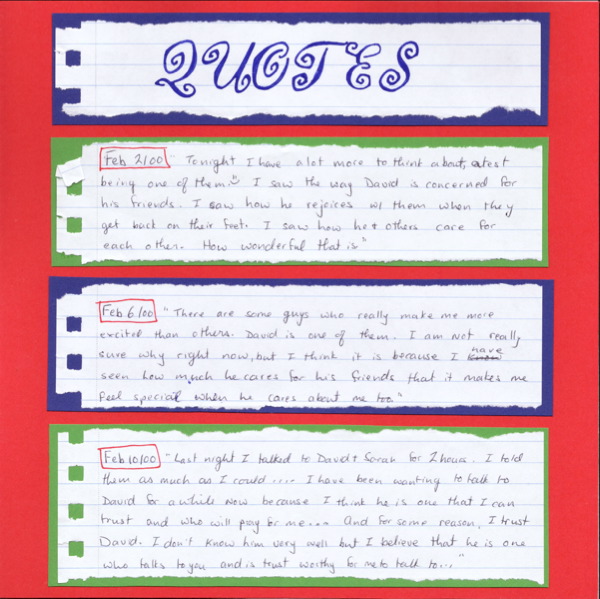 QUOTES
Feb 2/00 "Tonight I have alot more to think about, a test
being one of them. I saw the way David is concerned for
his friends. I saw how he rejoices w/ them when they
get back on their feet. I saw how he + others care for
each other. How wonderful that is"
Feb 6/00 "There are some guys who really make me more
excited than others. David is one of them. I am not really
sure why right now, but I think it is because I have
seen how much he cares for his friends that it makes me
feel special when he cares about me too."
Feb 10/00 "Last night I talked to David + Sarah for 2 hours. I told
them as much as I could.... I have been wanting to talk to
David for a while now because I think he is one that I can
trust and who will pray for me... And for some reason, I trust
David. I don't know him very well but I believe that he is one
who talks to you and is trust worthy for me to talk to..."